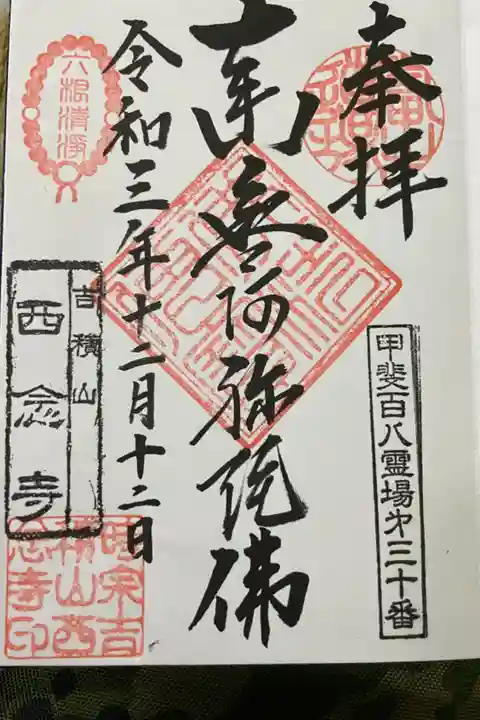 奉拝
甲斐百八霊場第三十番
南無阿弥陀佛
令和三年十二月十二日
六根清浄
吉積山
西念寺
時宗吉
積山西
念寺印